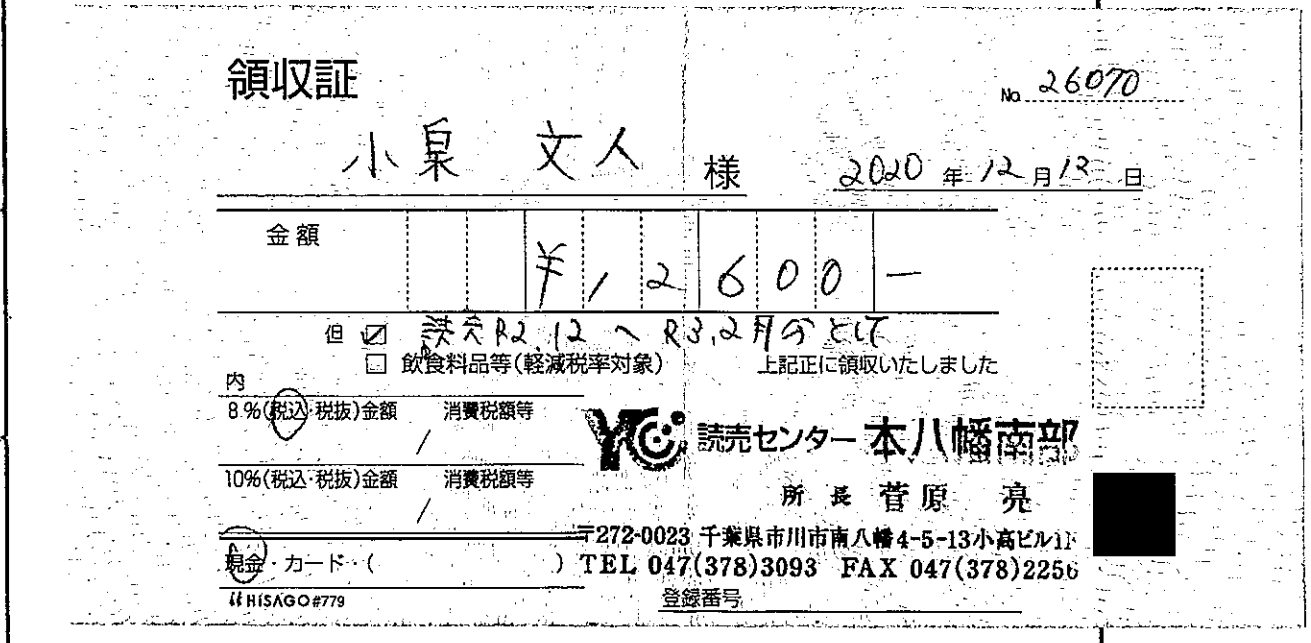 領収証
No. 26070
小泉 文人 様
2020 年 12 月 13 日
金額 ¥12600-
但 ☑ 読売R2.12〜R3.2月分として
☐ 飲食料品等(軽減税率対象) 上記正に領収いたしました
内
8%(税込・税抜)金額 消費税額等
/
10%(税込・税抜)金額 消費税額等
/
現金・カード・( )
HISAGO #779
YC 読売センター 本八幡南部
所長 菅原 亮
〒272-0023 千葉県市川市南八幡4-5-13小高ビル1F
TEL 047(378)3093 FAX 047(378)2256
登録番号